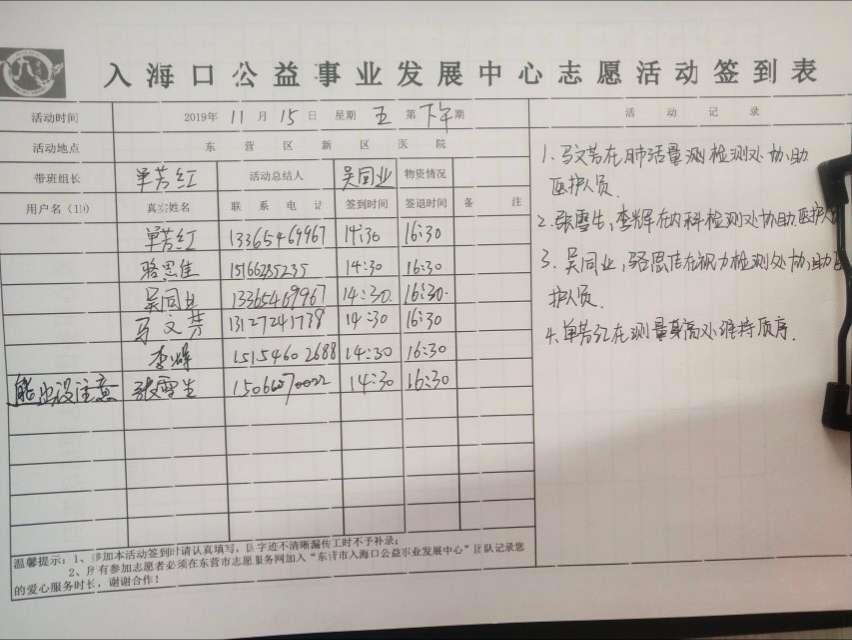 入海口公益事业发展中心志愿活动签到表
活动时间 2019年 11 月 15 日 星期 五 第 下午 期
活动地点 东营区新区医院
带班组长 单芳红 活动总结人 吴同业 物资情况
用户名(ID) 真实姓名 联系电话 签到时间 签退时间 备注
单芳红 13365469967 14:30 16:30
骆思佳 15166285235 14:30 16:30
吴同业 13365469967 14:30 16:30
马文芳 13127241738 14:30 16:30
李辉 15154602688 14:30 16:30
张雪生 14:30 16:30
温馨提示:1、参加本活动签到时请认真填写,因字迹不清晰漏传工时不予补录;
2、所有参加志愿者必须在东营市志愿服务网加入“东营市入海口公益事业发展中心”团队记录您
的爱心服务时长,谢谢合作!
活动记录
1.马文芳在肺活量测检测处协助
医护人员.
2.张雪生,李辉在内科检测处协助医护人
3.吴同业,骆思佳在视力检测处协助医
护人员.
4.单芳红在测量身高处维持顺序.